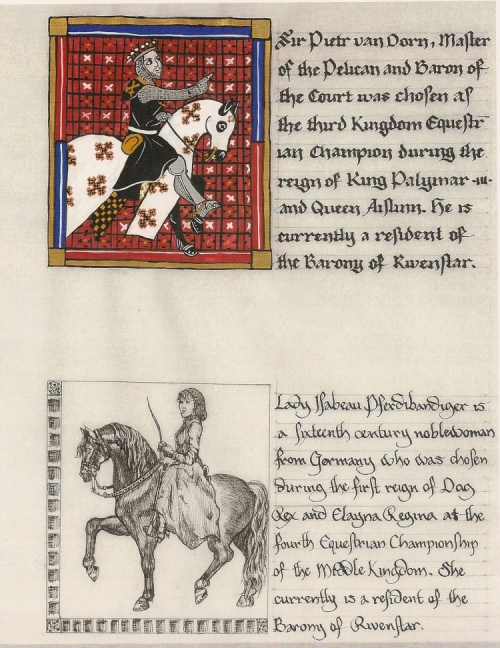 Sir Pietr van Dorn, Master
of the Pelican and Baron of
the Court was chosen as
the third Kingdom Equestr
ian Champion during the
reign of King Palymar -III-
and Queen Aislinn. He is
currently a resident of
the Barony of Rivenstar.
Lady Isabeau Pferdibandiger is
a sixteenth century noblewoman
from Germany who was chosen
during the first reign of Dag
Rex and Elayna Regina at the
fourth Equestrian Championship
of the Middle Kingdom. She
currently is a resident of the
Barony of Rivenstar.